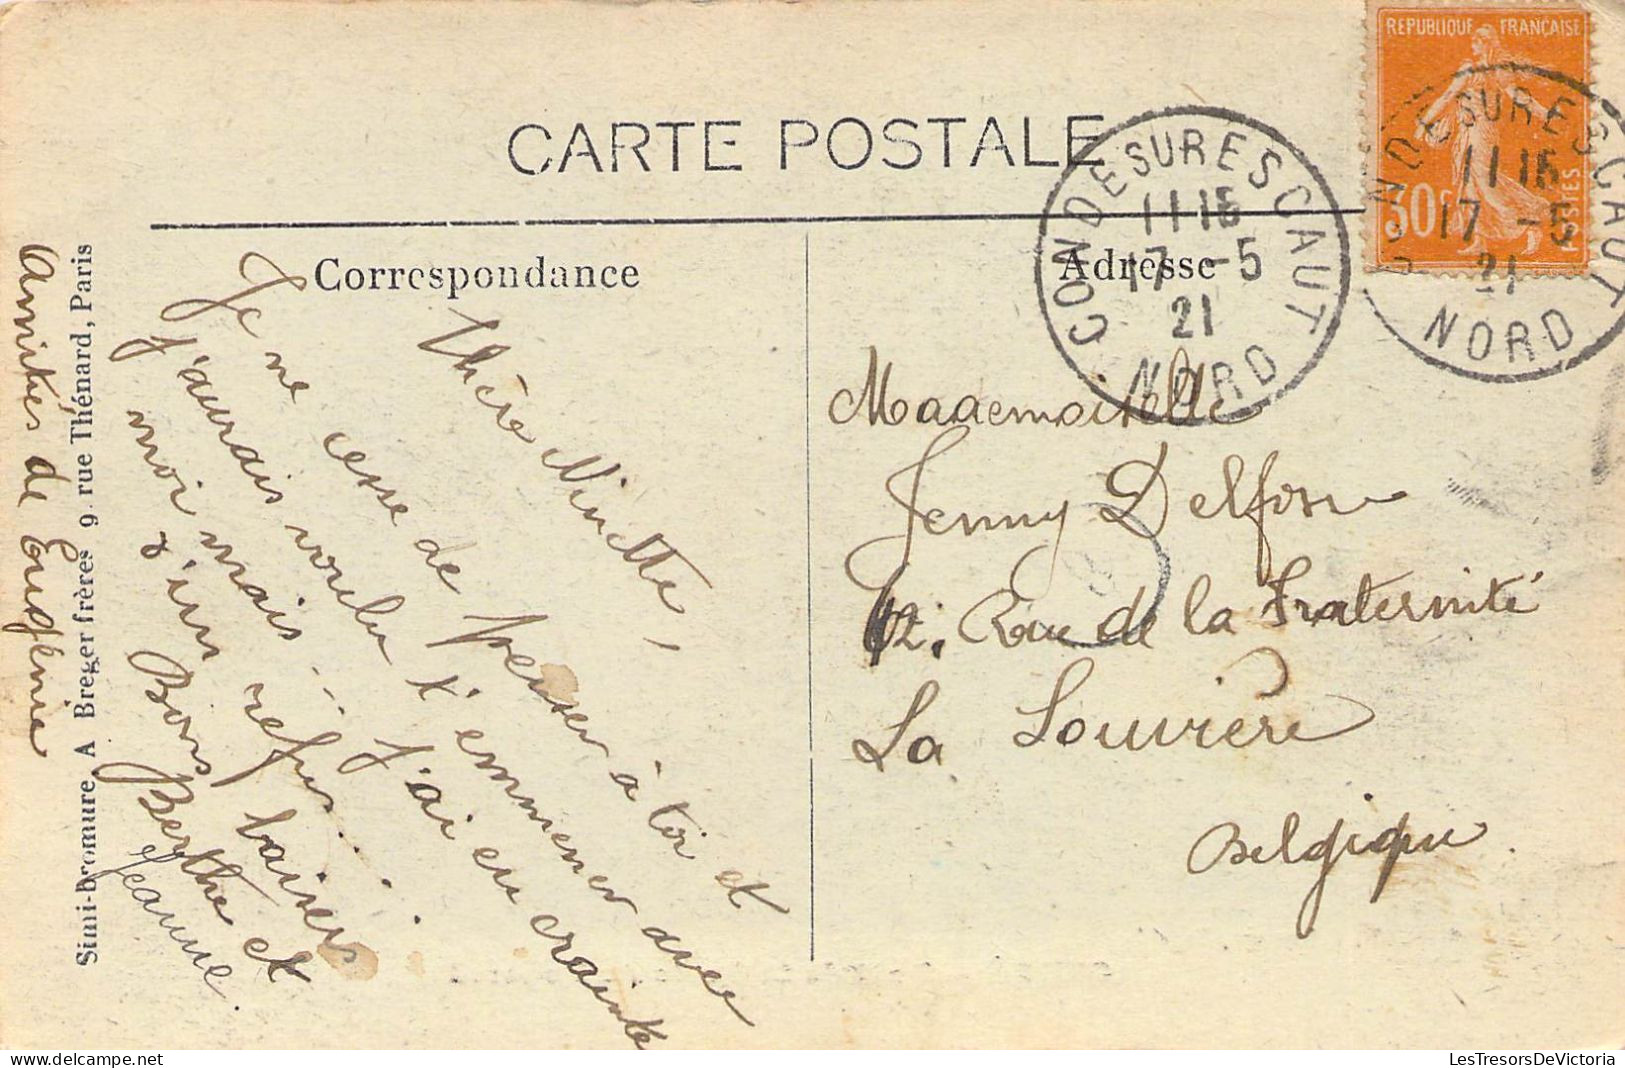 CARTE POSTALE
Correspondance
Adresse
REPUBLIQUE FRANÇAISE
30c
POSTES
CONDE SUR ESCAUT
11 15
17 -5
21
NORD
CONDE SUR ESCAUT
11 15
17 -5
21
NORD
Chère Ninette,
Je ne cesse de penser à toi et
j'aurais voulu t'emmener avec
moi mais... j'ai eu crainte
d'un refus.....
Bons baisers
Berthe et
Jeanne.
Amitiés de Eugénie
Simi-bromure A Breger frères 9, rue Thénard, Paris
Mademoiselle
Jenny Delfosse
12, Rue de la Fraternité
La Louvière
Belgique.
LesTresorsDeVictoria
delcampe.net